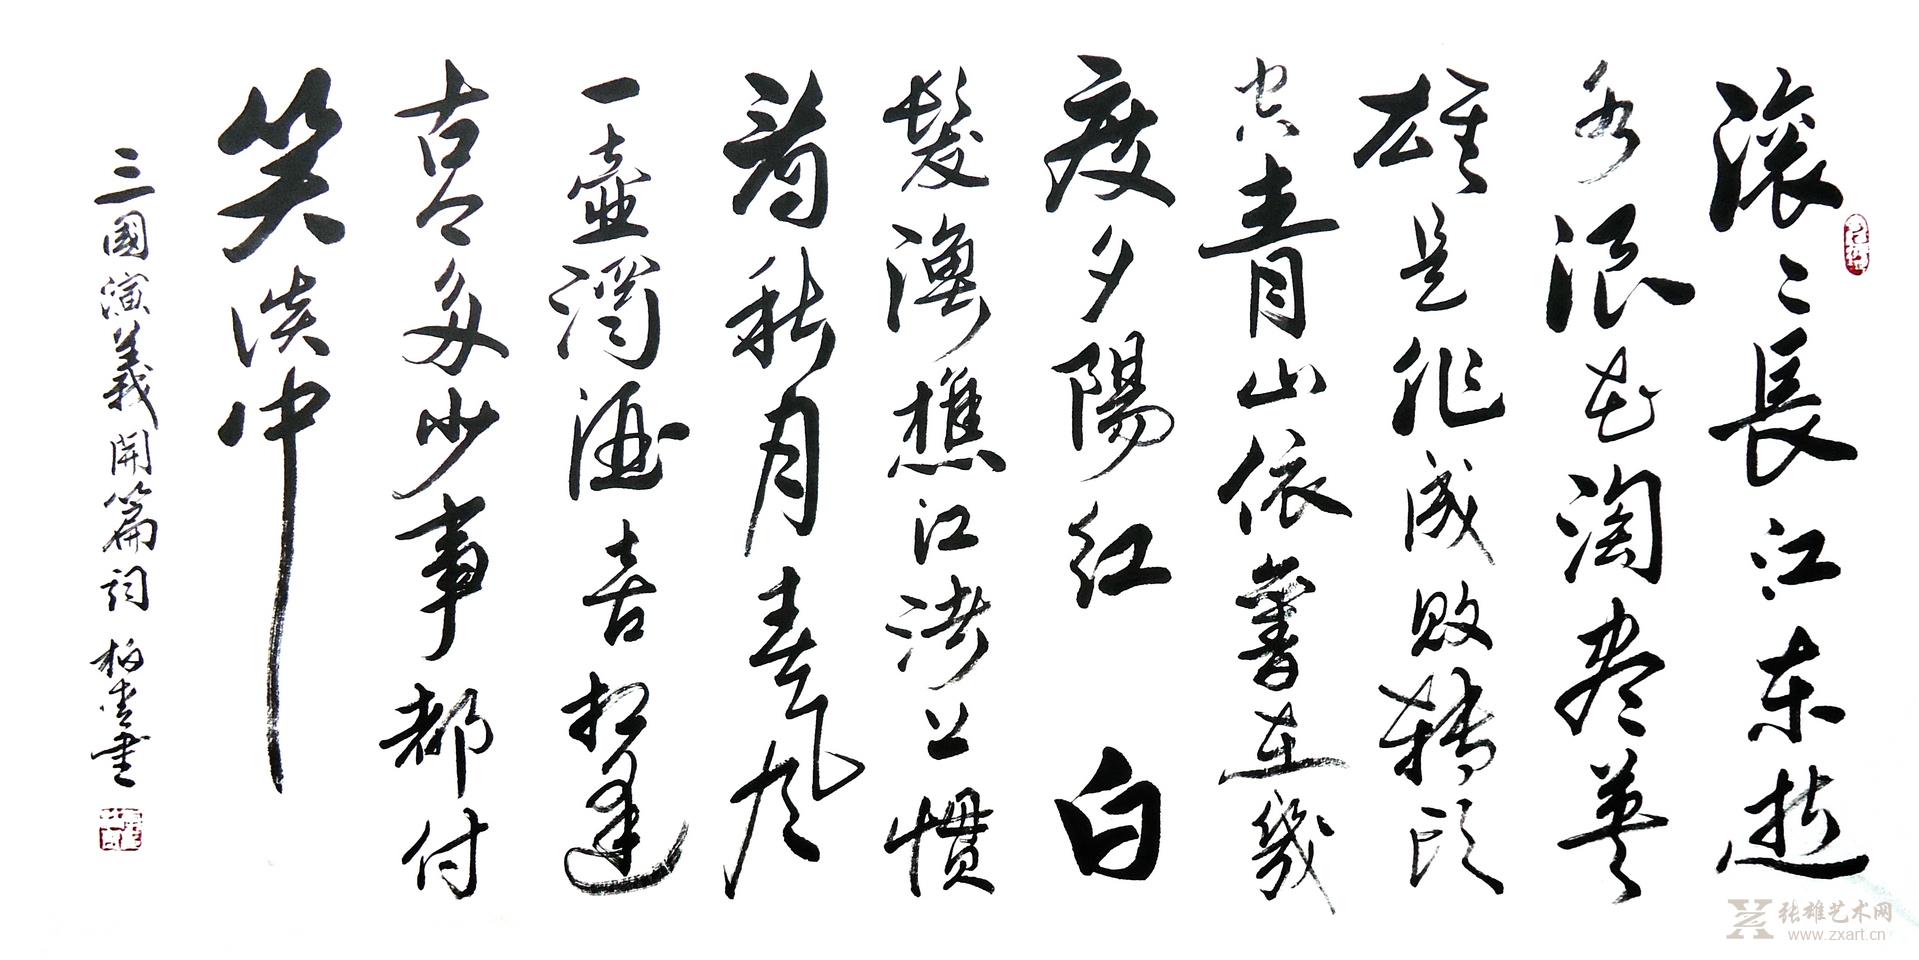 滚〻長江东逝
水浪花淘尽英
雄是非成败转頭
空青山依舊在幾
度夕陽红 白
髮漁樵江渚上惯
看秋月春风
一壶濁酒喜相逢
古今多少事都付
笑谈中
三國演義開篇詞 柏青書
张雄艺术网
www.zxart.cn